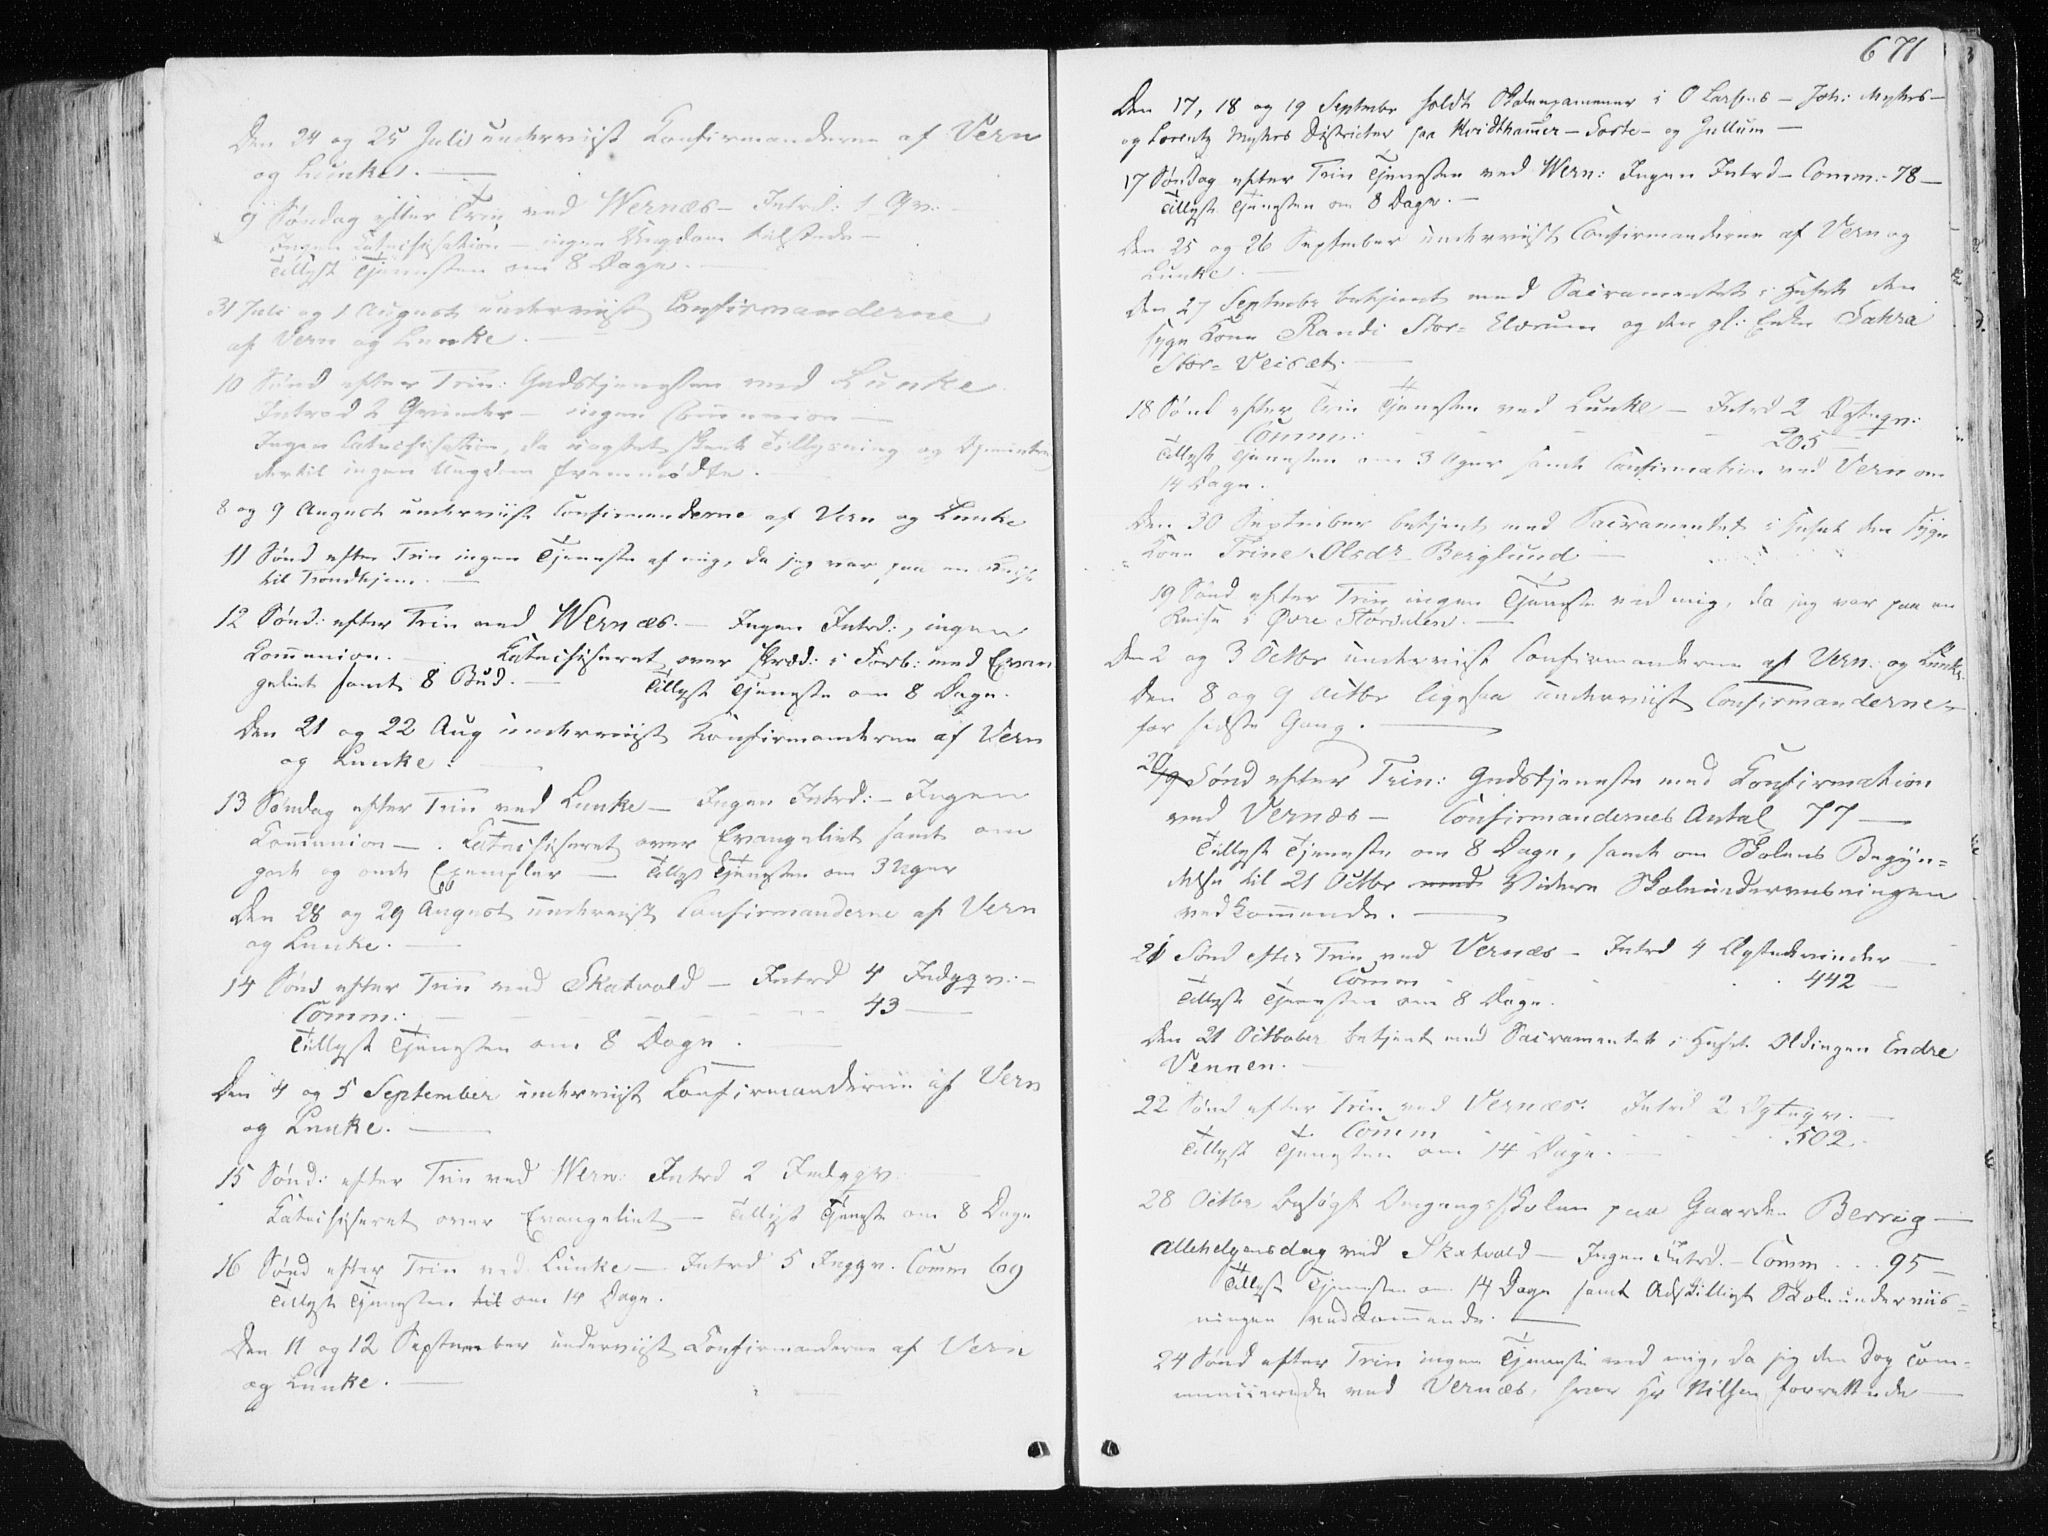 Den 24 og 25 Juli underviist Konfirmanderne af Vern
og Lunke. —
9 Søndag efter Trin ved Wernæs — Introd: 1 Qv: —
Ingen Catechisation — ingen Ungdom tilstede —
Tillyst Tjenesten om 8 Dage. —
31 Juli og 1 August underviist Confirmanderne
af Vern og Lunke. —
10 Sønd efter Trin: Gudstjenesten ved Lunke.
Introd 2 Qvinder — ingen Comunion —
Ingen Catechisation, da uagtet skeet Tillysning og
dertil ingen Ungdom fremmødte.
8 og 9 August underviist Confirmanderne af Vern og Lunke
11 Sønd efter Trin ingen Tjeneste af mig, da jeg var paa en Reise
til Trondhjem. —
12 Sønd: efter Trin ved Wernæs. — Ingen Introd:, ingen
Kommunion. — Katechiseret over Præd: i Forb: med Evan
geliet samt 8 Bud. — Tillyst Tjeneste om 8 Dage.
Den 21 og 22 Aug underviist Konfirmanderne af Vern
og Lunke. —
13 Søndag efter Trin ved Lunke — Ingen Introd: — Ingen
Kommunion — . Katechiseret over Evangeliet samt om
gode og onde Exempler — Tillyst Tjenesten om 3 Uger
Den 28 og 29 August underviist Confirmanderne af Vern
og Lunke. —
14 Sønd efter Trin ved Skatvold — Introd 4 Indgqv: —
Comm: — — — — — 43 —
Tillyst Tjenesten om 8 Dage. —
Den 4 og 5 September underviist Konfirmanderne af Vern
og Lunke. —
15 Sønd: efter Trin ved Wern: Introd 2 Indgqv.
Katechiseret over Evangeliet — Tillyst Tjeneste om 8 Dage
16 Sønd efter Trin ved Lunke — Introd 5 Inggv. Comm 69
Tillyst Tjenesten til om 14 Dage.
Den 11 og 12 September underviist Konfirmanderne af Vern
og Lunke. —
671
Den 17, 18 og 19 Septembr holdt Skoleexamener i O Larsens — Joh: Myhrs —
og Lorentz Myhrs Districter paa Hvidthamer — Forte — og Gullum —
17 Søndag efter Trin Tjenesten ved Wern: Ingen Introd — Comm: — 78 —
Tillyst Tjenesten om 8 Dage. —
Den 25 og 26 September underviist Confirmanderne af Vern og
Lunke. —
Den 27 Septembr betjent med Sacramentet i Huset den
syge Kone Randi Stor= Elvrum og den gl: Enke Sahra
Stor= Veiset. —
18 Sønd efter Trin Tjenesten ved Lunke — Introd 2 Ægteqv:
Comm: — — — 205 —
Tillyst Tjenesten om 3 Uger samt Confirmation ved Vern om
14 Dage.
Den 30 September betjent med Sacramentet i Huset den syge
Kone Trine Olsdr Berglund —
19 Sønd efter Trin ingen Tjeneste ved mig, da jeg var paa en
Reise i Øvre Størdalen. —
Den 2 og 3 Octbr underviist Confirmanderne af Vern: og Lunke.
Den 8 og 9 Octbr ligesaa underviist Confirmanderne
for sidste Gang. —
20 19 Sønd efter Trin: Gudstjeneste med Confirmation
ved Vernæs — Confirmandernes Antal 77 —
Tillyst Tjeneste om 8 Dage, samt om Skolens Begyn=
delse til 21 Octbr med Videre Skoleundervisningen
vedkommende. —
21 Sønd efter Trin ved Vernæs — Introd 4 Ægteqvinder —
Comm . . . 442 —
Tillyst Tjenesten om 8 Dage.
Den 21 Octbober betjent med Sacramentet i Huset Oldingen Endre
Vennen. —
22 Sønd efter Trin ved Vernæs: Introd 2 Ægteqv. —
Comm . . . 502.
Tillyst Tjenesten om 14 Dage. —
28 Octbr besøgt Omgangsskolen paa Gaarden Berrig —
Allehelgensdag ved Skatvold — Ingen Introd. — Comm . . . 95 —
Tillyst Tjenesten om 14 Dage samt Adskilligt Skoleunderviis=
ningen vedkommende. —
24 Sønd efter Trin ingen Tjeneste ved mig, da jeg den Dag com=
municerede ved Vernæs, hvor Hr Nilsen forrettede —